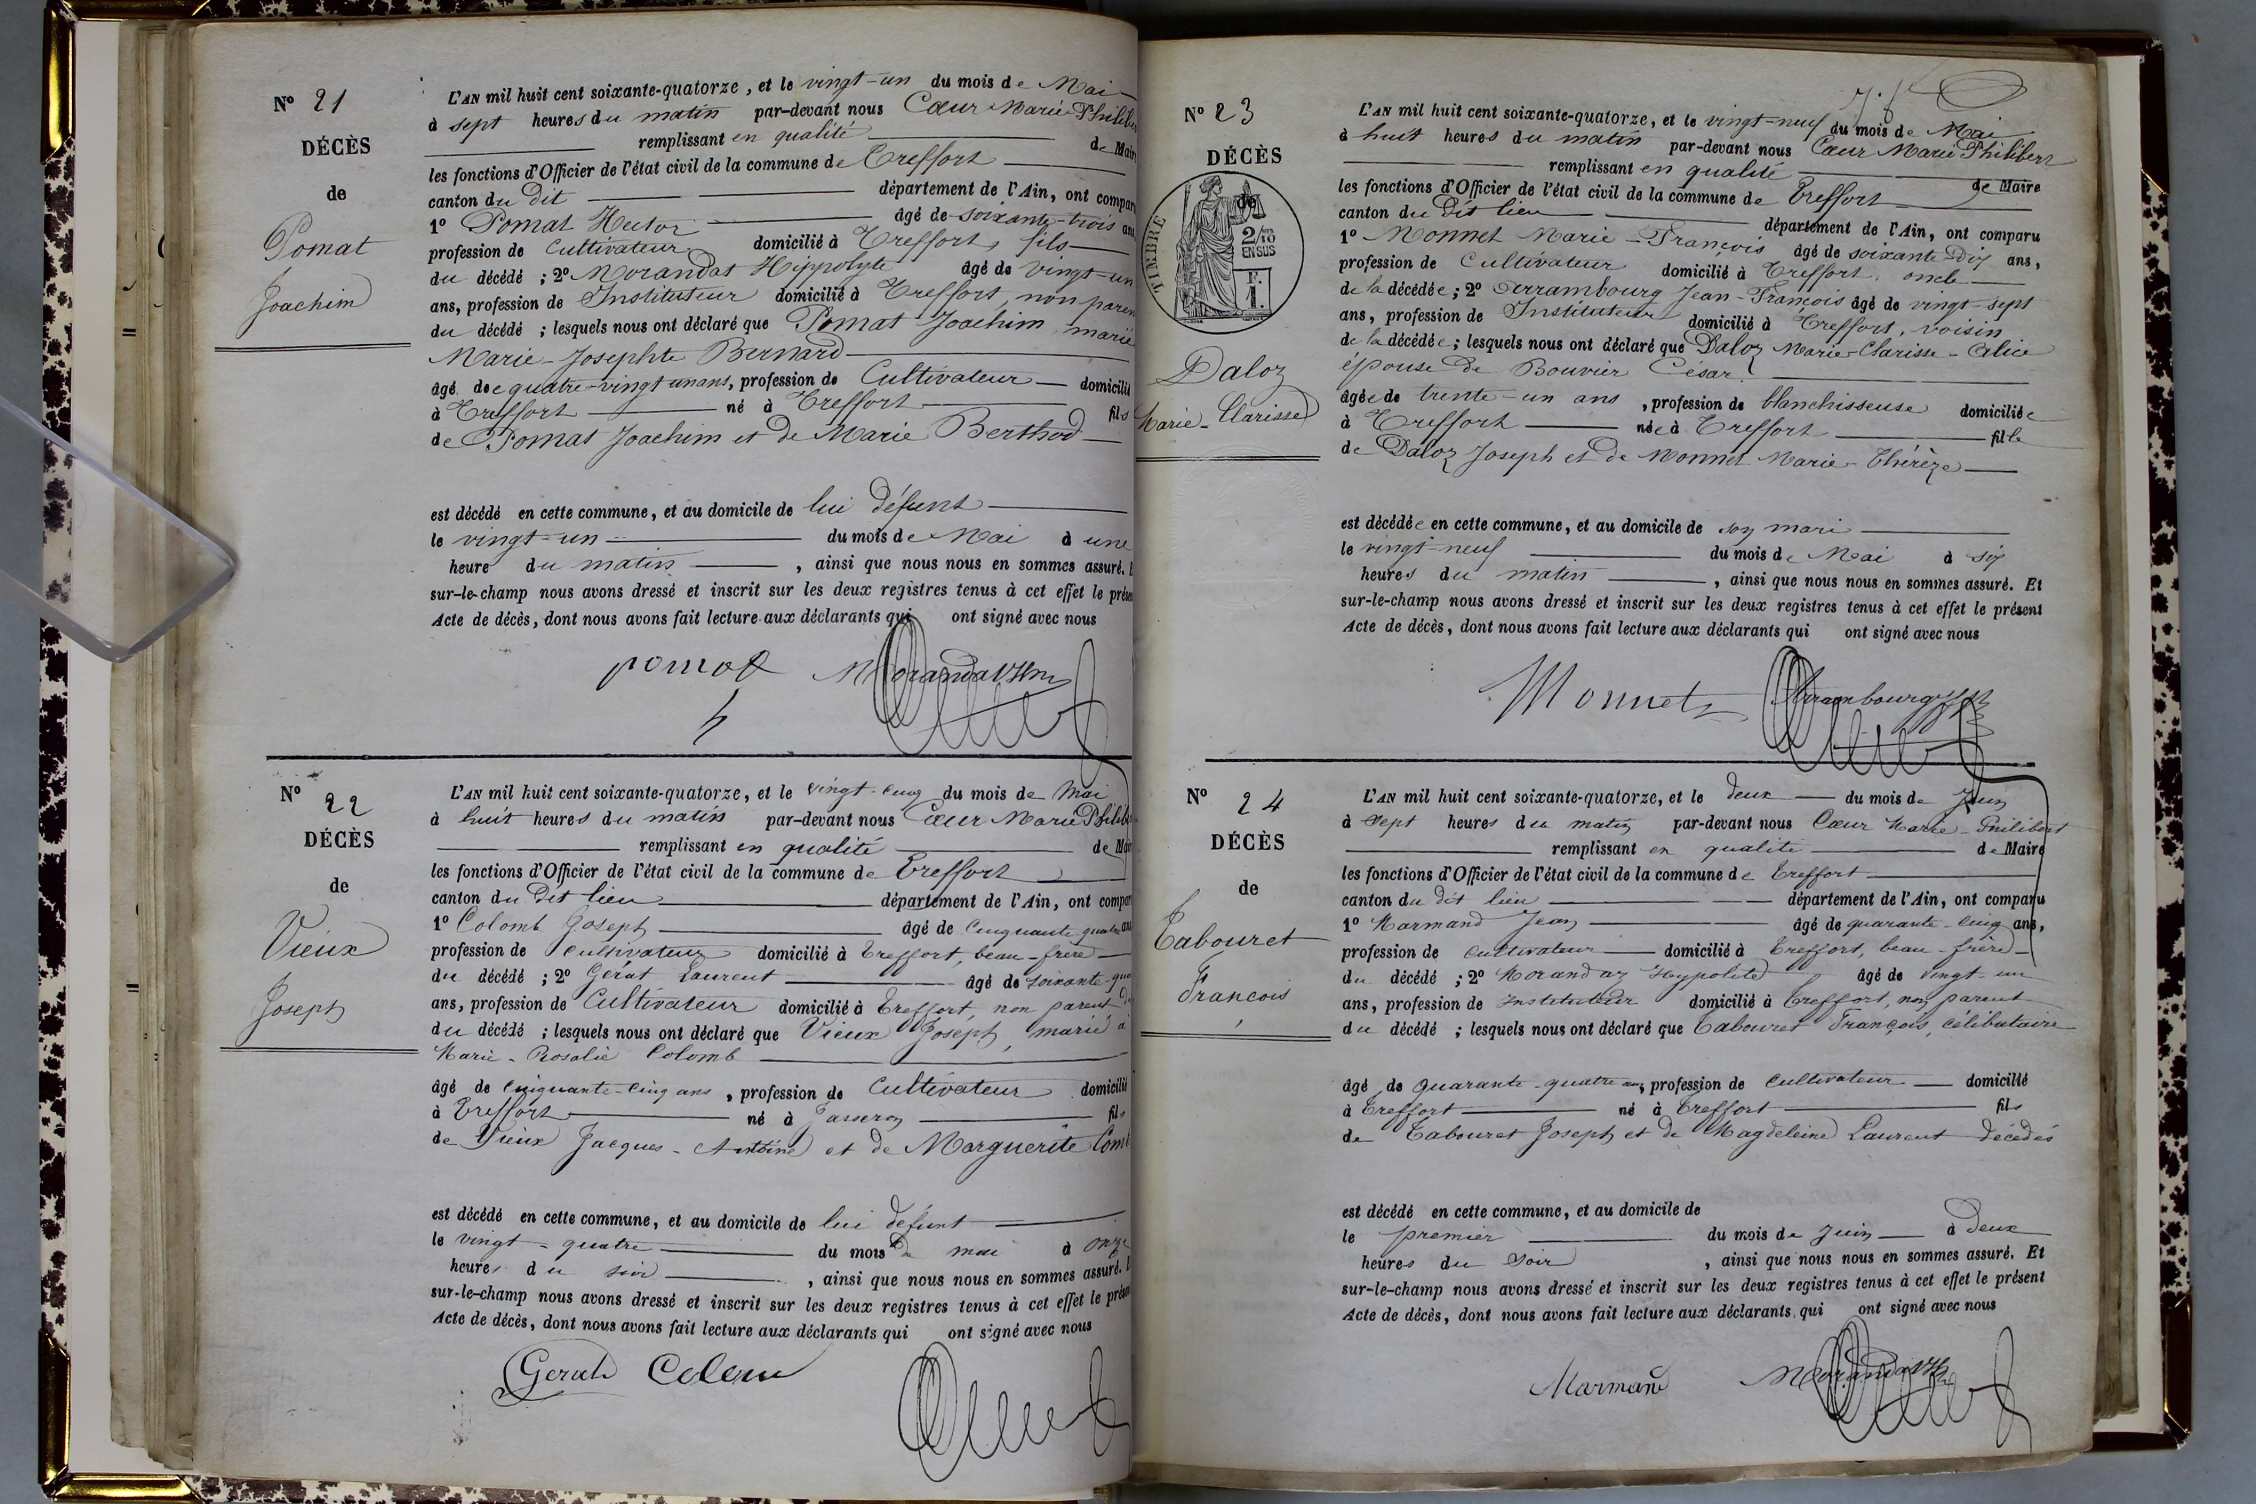 N° 21
DÉCÈS
de
Pomat
Joachim
L'AN mil huit cent soixante-quatorze, et le vingt-un du mois de Mai
à sept heures du matin par-devant nous Cœur Marie Philib
remplissant en qualité de Mair
les fonctions d'Officier de l'état civil de la commune de Treffort
canton du Dit département de l'Ain, ont compar
1° Pomat Hector âgé de soixante-trois ans
profession de Cultivateur domicilié à Treffort, fils
du décédé ; 2° Morandat Hippolyte âgé de vingt-un
ans, profession de Instituteur domicilié à Treffort, non paren
du décédé ; lesquels nous ont déclaré que Pomat Joachim, marié
Marie-Josephte Bernard
âgé de quatre-vingt un ans, profession de Cultivateur domicilié
à Treffort né à Treffort fils
de Pomat Joachim et de Marie Berthod
est décédé en cette commune, et au domicile de lui défunt
le vingt-un du mois de Mai à une
heure du matin, ainsi que nous nous en sommes assuré. E
sur-le-champ nous avons dressé et inscrit sur les deux registres tenus à cet effet le prése
Acte de décès, dont nous avons fait lecture aux déclarants qui ont signé avec nous
pomat Morandat
N° 22
DÉCÈS
de
Vieux
Joseph
L'AN mil huit cent soixante-quatorze, et le vingt-cinq du mois de Mai
à huit heures du matin par-devant nous Cœur Marie Philib
remplissant en qualité de Mair
les fonctions d'Officier de l'état civil de la commune de Treffort
canton du Dit lieu département de l'Ain, ont compar
1° Colomb Joseph âgé de Cinquante quatre ans
profession de Cultivateur domicilié à Treffort, beau-frère
du décédé ; 2° Gérat Laurent âgé de soixante-qua
ans, profession de Cultivateur domicilié à Treffort, non parent
du décédé ; lesquels nous ont déclaré que Vieux Joseph, marié à
Marie-Rosalie Colomb
âgé de Cinquante-Cinq ans, profession de Cultivateur domicilié
à Treffort né à Jasseron fils
de Vieux Jacques-Antoine et de Marguerite
est décédé en cette commune, et au domicile de lui défunt
le vingt-quatre du mois de mai à onze
heures du soir, ainsi que nous nous en sommes assuré. E
sur-le-champ nous avons dressé et inscrit sur les deux registres tenus à cet effet le prése
Acte de décès, dont nous avons fait lecture aux déclarants qui ont signé avec nous
Gerat Colem
N° 23
DÉCÈS
de
TIMBRE
2/10 EN SUS
F. 1.
Daloz
Marie-Clarisse
L'AN mil huit cent soixante-quatorze, et le vingt-neuf du mois de Mai
à huit heures du matin par-devant nous Cœur Marie Philibert
remplissant en qualité de Maire
les fonctions d'Officier de l'état civil de la commune de Treffort
canton du Dit lieu département de l'Ain, ont comparu
1° Monnet Marie-François âgé de soixante Dix ans,
profession de Cultivateur domicilié à Treffort, oncle
de la décédée ; 2° Arrambourg Jean-François âgé de vingt-sept
ans, profession de Instituteur domicilié à Treffort, voisin
de la décédée ; lesquels nous ont déclaré que Daloz Marie-Clarisse-Alice
épouse de Bouvier César
âgée de trente-un ans, profession de blanchisseuse domiciliée
à Treffort née à Treffort fille
de Daloz Joseph et de Monnet Marie-Thérèze
est décédée en cette commune, et au domicile de son mari
le vingt-neuf du mois de Mai à six
heures du matin, ainsi que nous nous en sommes assuré. Et
sur-le-champ nous avons dressé et inscrit sur les deux registres tenus à cet effet le présent
Acte de décès, dont nous avons fait lecture aux déclarants qui ont signé avec nous
Monnet Arrambourg
N° 24
DÉCÈS
de
Tabouret
François
L'AN mil huit cent soixante-quatorze, et le deux du mois de Juin
à sept heures du matin par-devant nous Cœur Marie-Philibert
remplissant en qualité de Maire
les fonctions d'Officier de l'état civil de la commune de Treffort
canton du dit lieu département de l'Ain, ont comparu
1° Marmand Jean âgé de quarante-cinq ans,
profession de Cultivateur domicilié à Treffort, beau-frère
du décédé ; 2° Morandaz Hypolite âgé de vingt-un
ans, profession de Instituteur domicilié à Treffort, non parent
du décédé ; lesquels nous ont déclaré que Tabouret François, célibataire
âgé de quarante-quatre ans, profession de Cultivateur domicilié
à Treffort né à Treffort fils
de Tabouret Joseph et de Magdeleine Laurent décédés
est décédé en cette commune, et au domicile de
le premier du mois de Juin à Deux
heures du soir, ainsi que nous nous en sommes assuré. Et
sur-le-champ nous avons dressé et inscrit sur les deux registres tenus à cet effet le présent
Acte de décès, dont nous avons fait lecture aux déclarants qui ont signé avec nous
Marmand Morandat